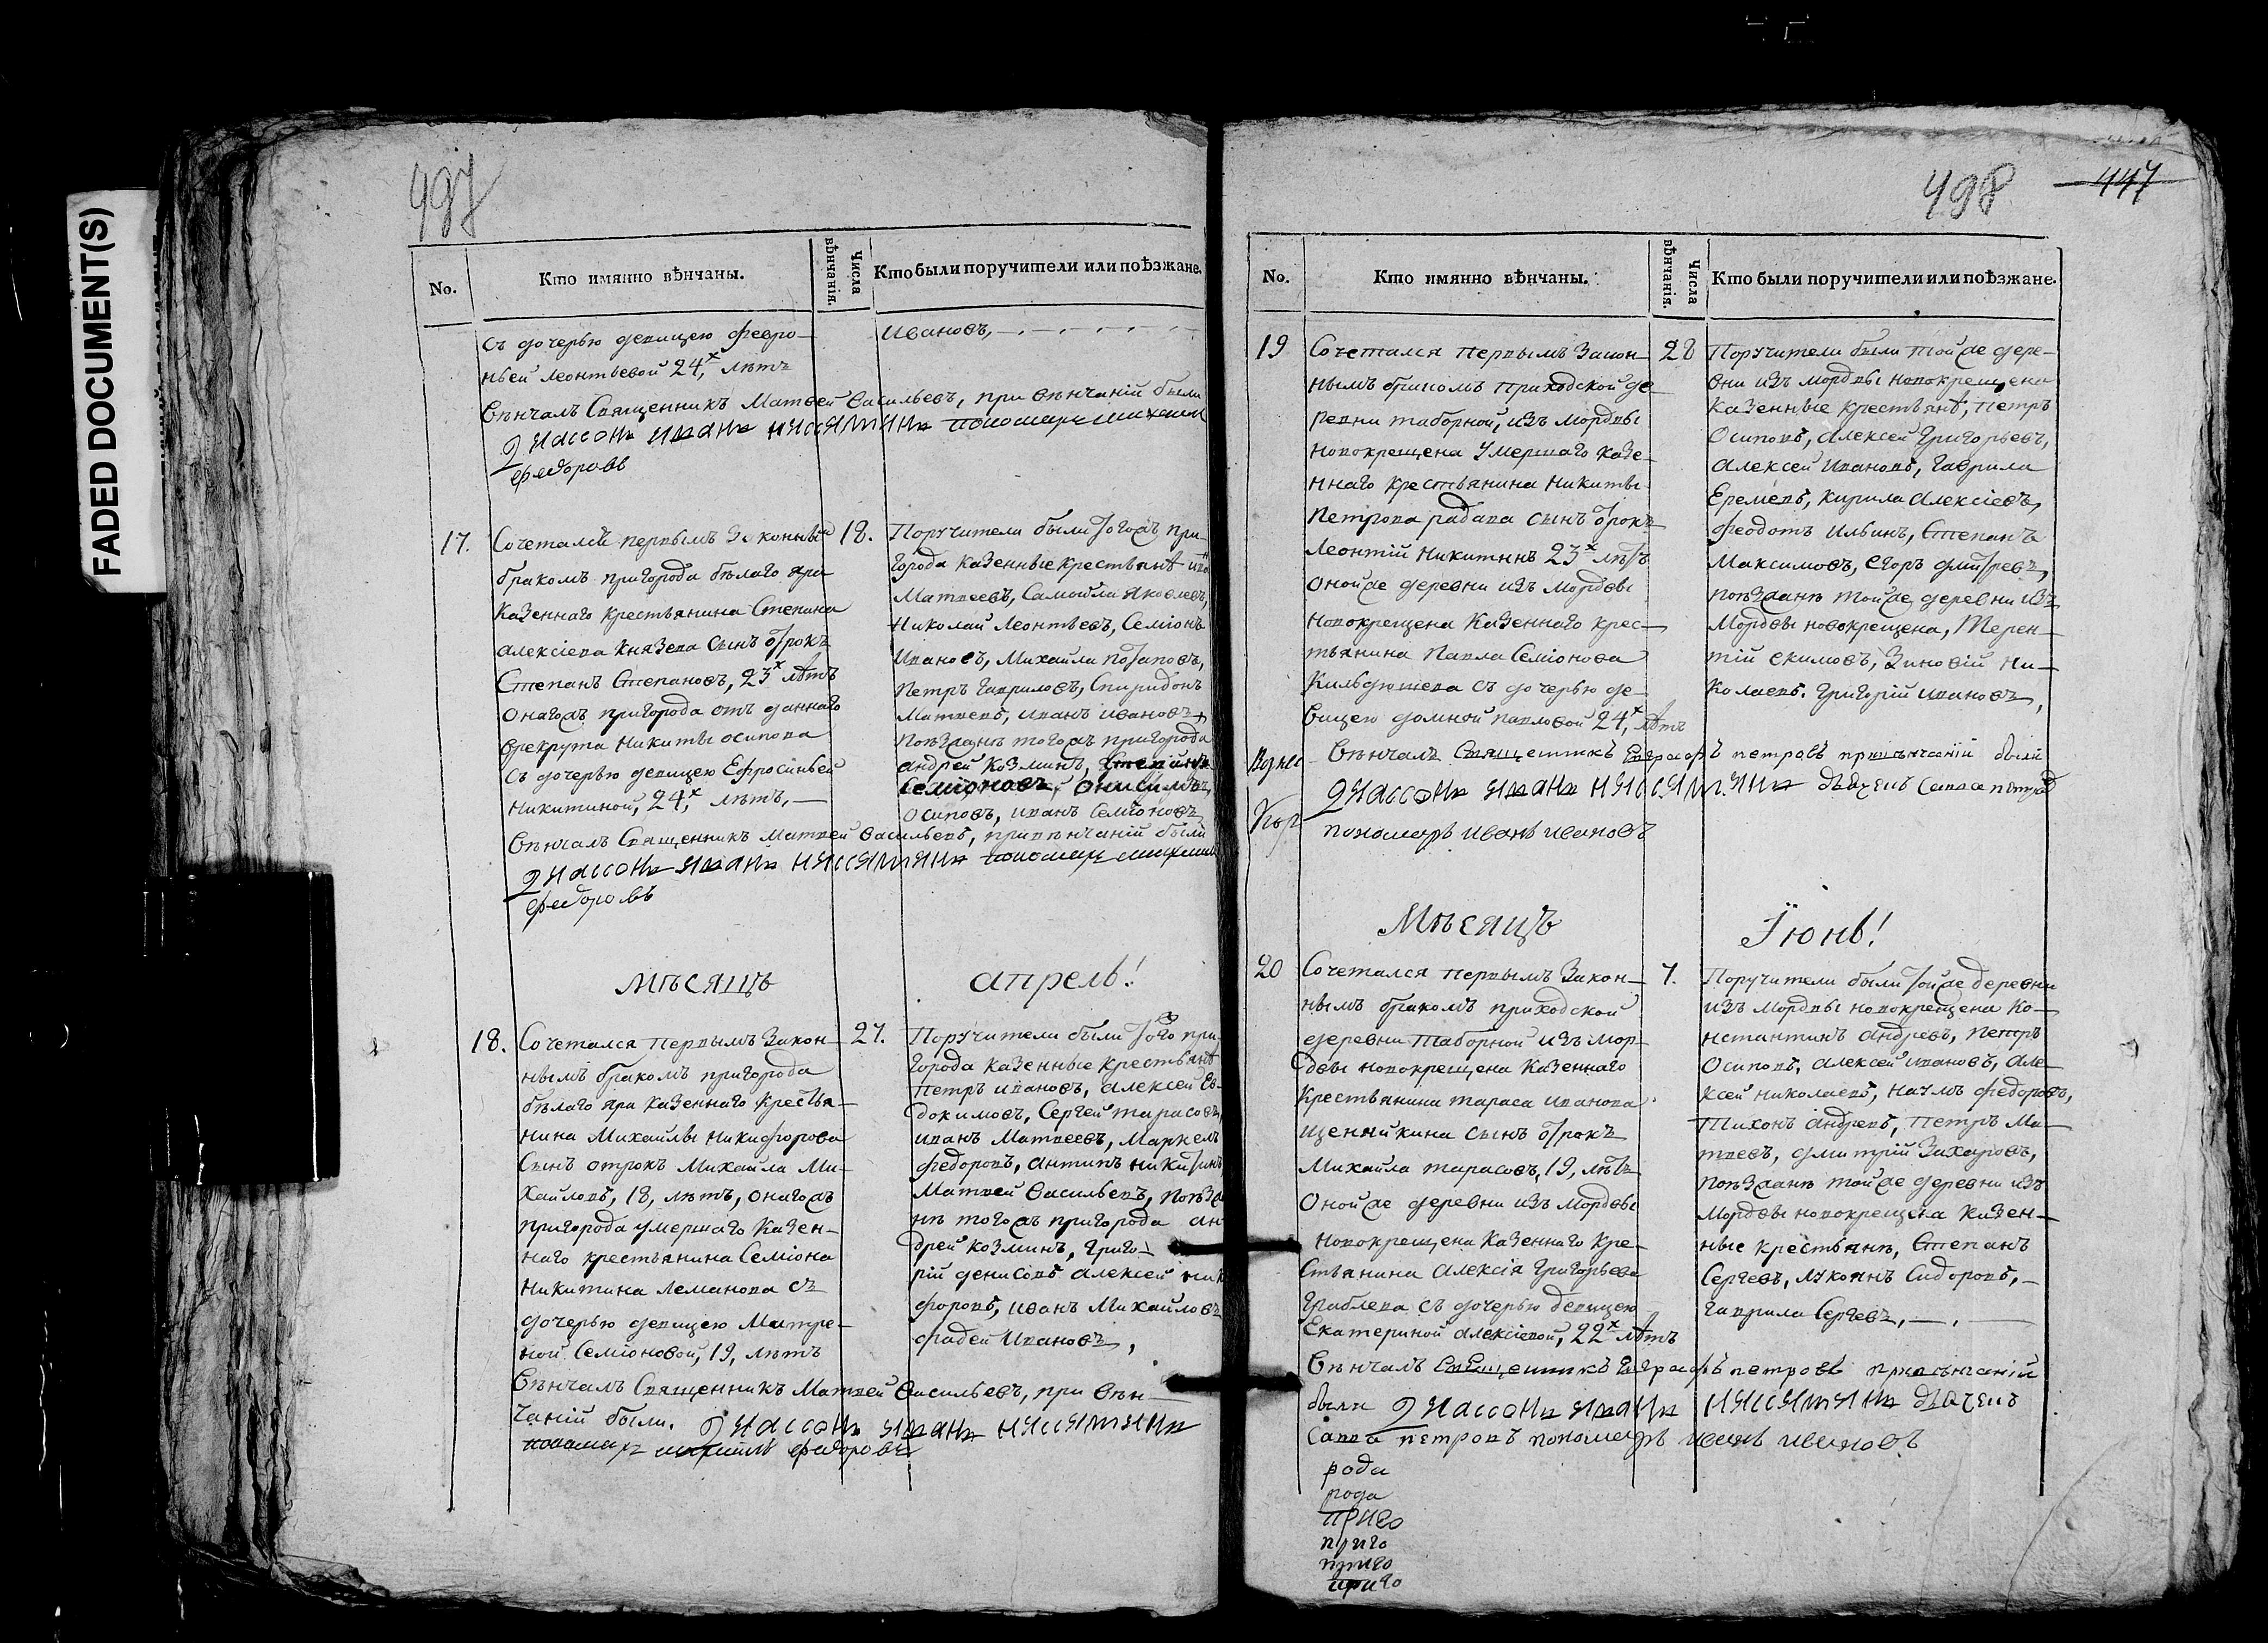 FADED DOCUMENT(S)
497
No.
Кто имянно вѣнчаны.
Числа вѣнчанія.
Кто были поручители или поѣзжане.
съ дочерью девицею февро-
ньей Леонтьевой 24,х лѣтъ
Ивановъ,
Вѣнчалъ Священникъ Матвей Васильевъ, при вѣнчаній были
пономарь
федоровъ
17.
Сочетался первымъ законны
бракомъ пригорода бѣлаго яра
Казеннаго крестьянина Степана
Алексіева Князева сынъ отрокъ
Степанъ Степановъ, 23х лѣтъ
Онагожъ пригорода отъ даннаго
врекрута Никиты Осипова
съ дочерью девицею Ефросиньей
Никитиной, 24,х лѣтъ,
12.
Поручители были тогожъ при-
города казенные крестьянѣ
Матвеевъ, Самойла Яковлевъ,
Николай Леонтьевъ, Семіонъ
Ивановъ, Михайла Потаповъ,
Петръ Гавриловъ, Спиридонъ
Матвеевъ, Иванъ Ивановъ,
поѣзжанѣ тогожъ пригорода
Андрей Козминъ,
Семіоновъ, Онисимъ
Осиповъ, Иванъ Семіоновъ
Вѣнчалъ Священникъ Матвей Васильевъ, при вѣнчаній были
пономарь
федоровъ
Мѣсяцъ
апрель!
18.
Сочетался первымъ Закон-
нымъ бракомъ пригорода
бѣлаго яра казеннаго крестья-
нина Михайлы Никифорова
Сынъ отрокъ Михайла Ми-
хайловъ, 18, лѣтъ, онагожъ
пригорода умершаго Казен-
наго крестьянина Семіона
Никитина Леманова съ
дочерью девицею Матре-
ной Семіоновой, 19, лѣтъ
27.
Поручители были того при-
города казенные крестьянѣ
Петръ Ивановъ, Алексей Ев-
докимовъ, Сергей Тарасовъ,
Иванъ Матвеевъ, Маркелъ
федоровъ, Антипъ Никитинъ
Матвей Васильевъ, поѣзжа
нѣ тогожъ пригорода Ан
дрей Козминъ, Григо-
рій Денисовъ Алексей Ник
форовъ, Иванъ Михайловъ
фадей Ивановъ,
Вѣнчалъ Священникъ Матвей Васильевъ, при вѣн-
чаній были.
пономарь федоровъ
498
447
No.
Кто имянно вѣнчаны.
Числа вѣнчанія.
Кто были поручители или поѣзжане.
19
Сочетался первымъ Закон-
нымъ бракомъ приходской де-
ревни таборной, изъ мордвы
новокрещена умершаго казе-
ннаго крестьянина Никиты
Петрова радава сынъ отрокъ
Леонтій Никитинъ 23х лѣтъ
Онойже деревни изъ Мордвы
новокрещена Казеннаго крес-
тьянина Павла Семіонова
Кильдюшева съ дочерью де-
вицею домной Павловой 24,х лѣтъ
28
Поручители были тойже дере-
вни изъ мордвы новокрещена
Казенные крестьянѣ, Петръ
Осиповъ, Алексей Григорьевъ,
Алексей Ивановъ, Гаврила
Еремеевъ, Кирила Алексіевъ,
феодотъ Ильинъ, Степанъ
Максимовъ, Егоръ Дмитревъ,
поѣзжанѣ тойже деревни изъ
Мордвы новокрещена, Терен-
тій Екимовъ, Зиновій Ни-
колаевъ. Григорій Ивановъ,
Вѣнчалъ Священникъ Евграфъ петровъ при вѣнчаній были
дьячекъ Савва петров
пономарь Иванъ Ивановъ
Мѣсяцъ
Їюнь!
20
Сочетался первымъ Закон-
нымъ бракомъ приходской
деревни Таборной изъ Мор-
двы новокрещена Казеннаго
Крестьянина Тараса Иванова
Щенникина сынъ отрокъ
Михайла Тарасовъ, 19, лѣтъ
Онойже деревни изъ Мордвы
Новокрещена Казеннаго Кре-
стьянина Алексія Григорьева
Граблева съ дочерью девицею
Екатериной Алексіевой, 22х лѣтъ
7.
Поручители были тойже деревни
изъ Мордвы новокрещена Ко-
нстантинъ Андревъ, Петръ
Осиповъ, Алексей Ивановъ, Але-
ксей Николаевъ, Наумъ федоровъ,
Тихонъ Андревъ, Петръ Ма-
твеевъ, Дмитрій Захаровъ,
поѣзжанѣ тойже деревни изъ
Мордвы новокрещена Казен-
ные крестьянѣ, Степанъ
Сергевъ, Лукоянъ Сидоровъ,
Гаврила Сергевъ,
Вѣнчалъ Священникъ Евграфъ петровъ при вѣнчаній
были дьячекъ
Савва петровъ пономарь Иванъ Ивановъ
рода
рода
приго
приго
приго
приго